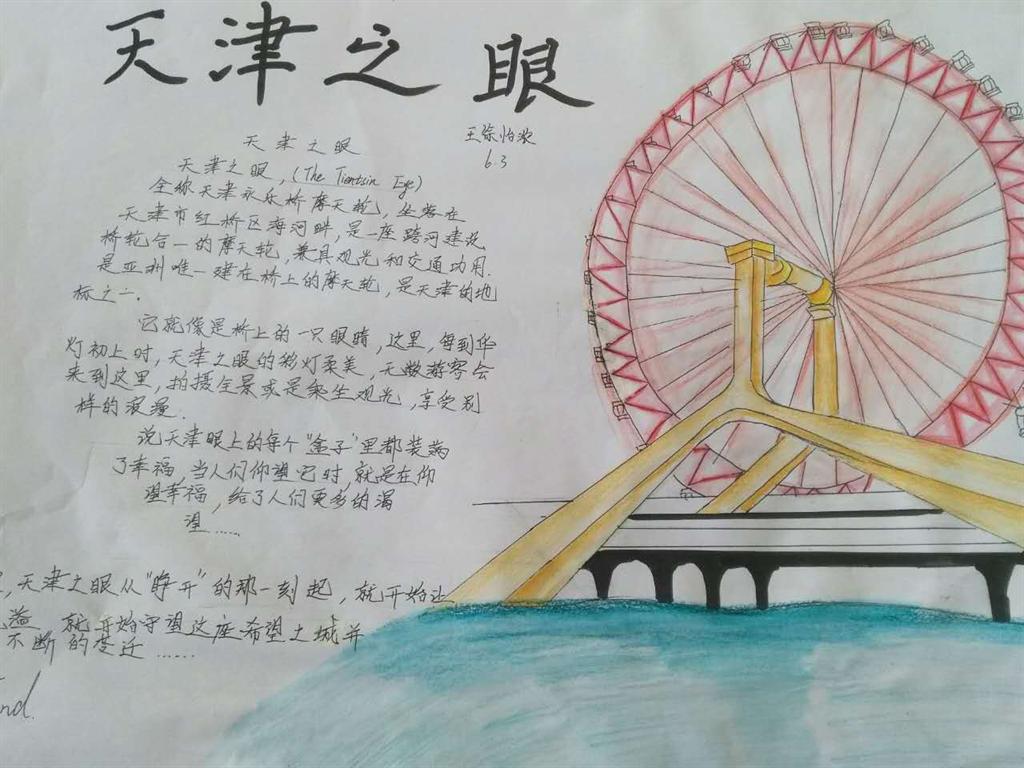 天津之眼
王徐怡浓
6.3
天津之眼
天津之眼,(The Tientsin Eye)
全称天津永乐桥摩天轮,坐落在
天津市红桥区海河畔,是一座跨河建设
桥轮合一的摩天轮,兼具观光和交通功用.
是亚洲唯一建在桥上的摩天轮,是天津的地
标之一.
它就像是桥上的一只眼睛,这里,每到华
灯初上时,天津之眼的彩灯柔美,无数游客会
来到这里,拍摄全景或是乘坐观光,享受别
样的浪漫.
说天津眼上的每个"盒子"里都装满
了幸福,当人们仰望它时,就是在仰
望幸福,给了人们更多的渴
望……
,天津之眼从"睁开"的那一刻起,就开始让
溢 就开始守望这座希望之城并
不断的变迁……
nd.